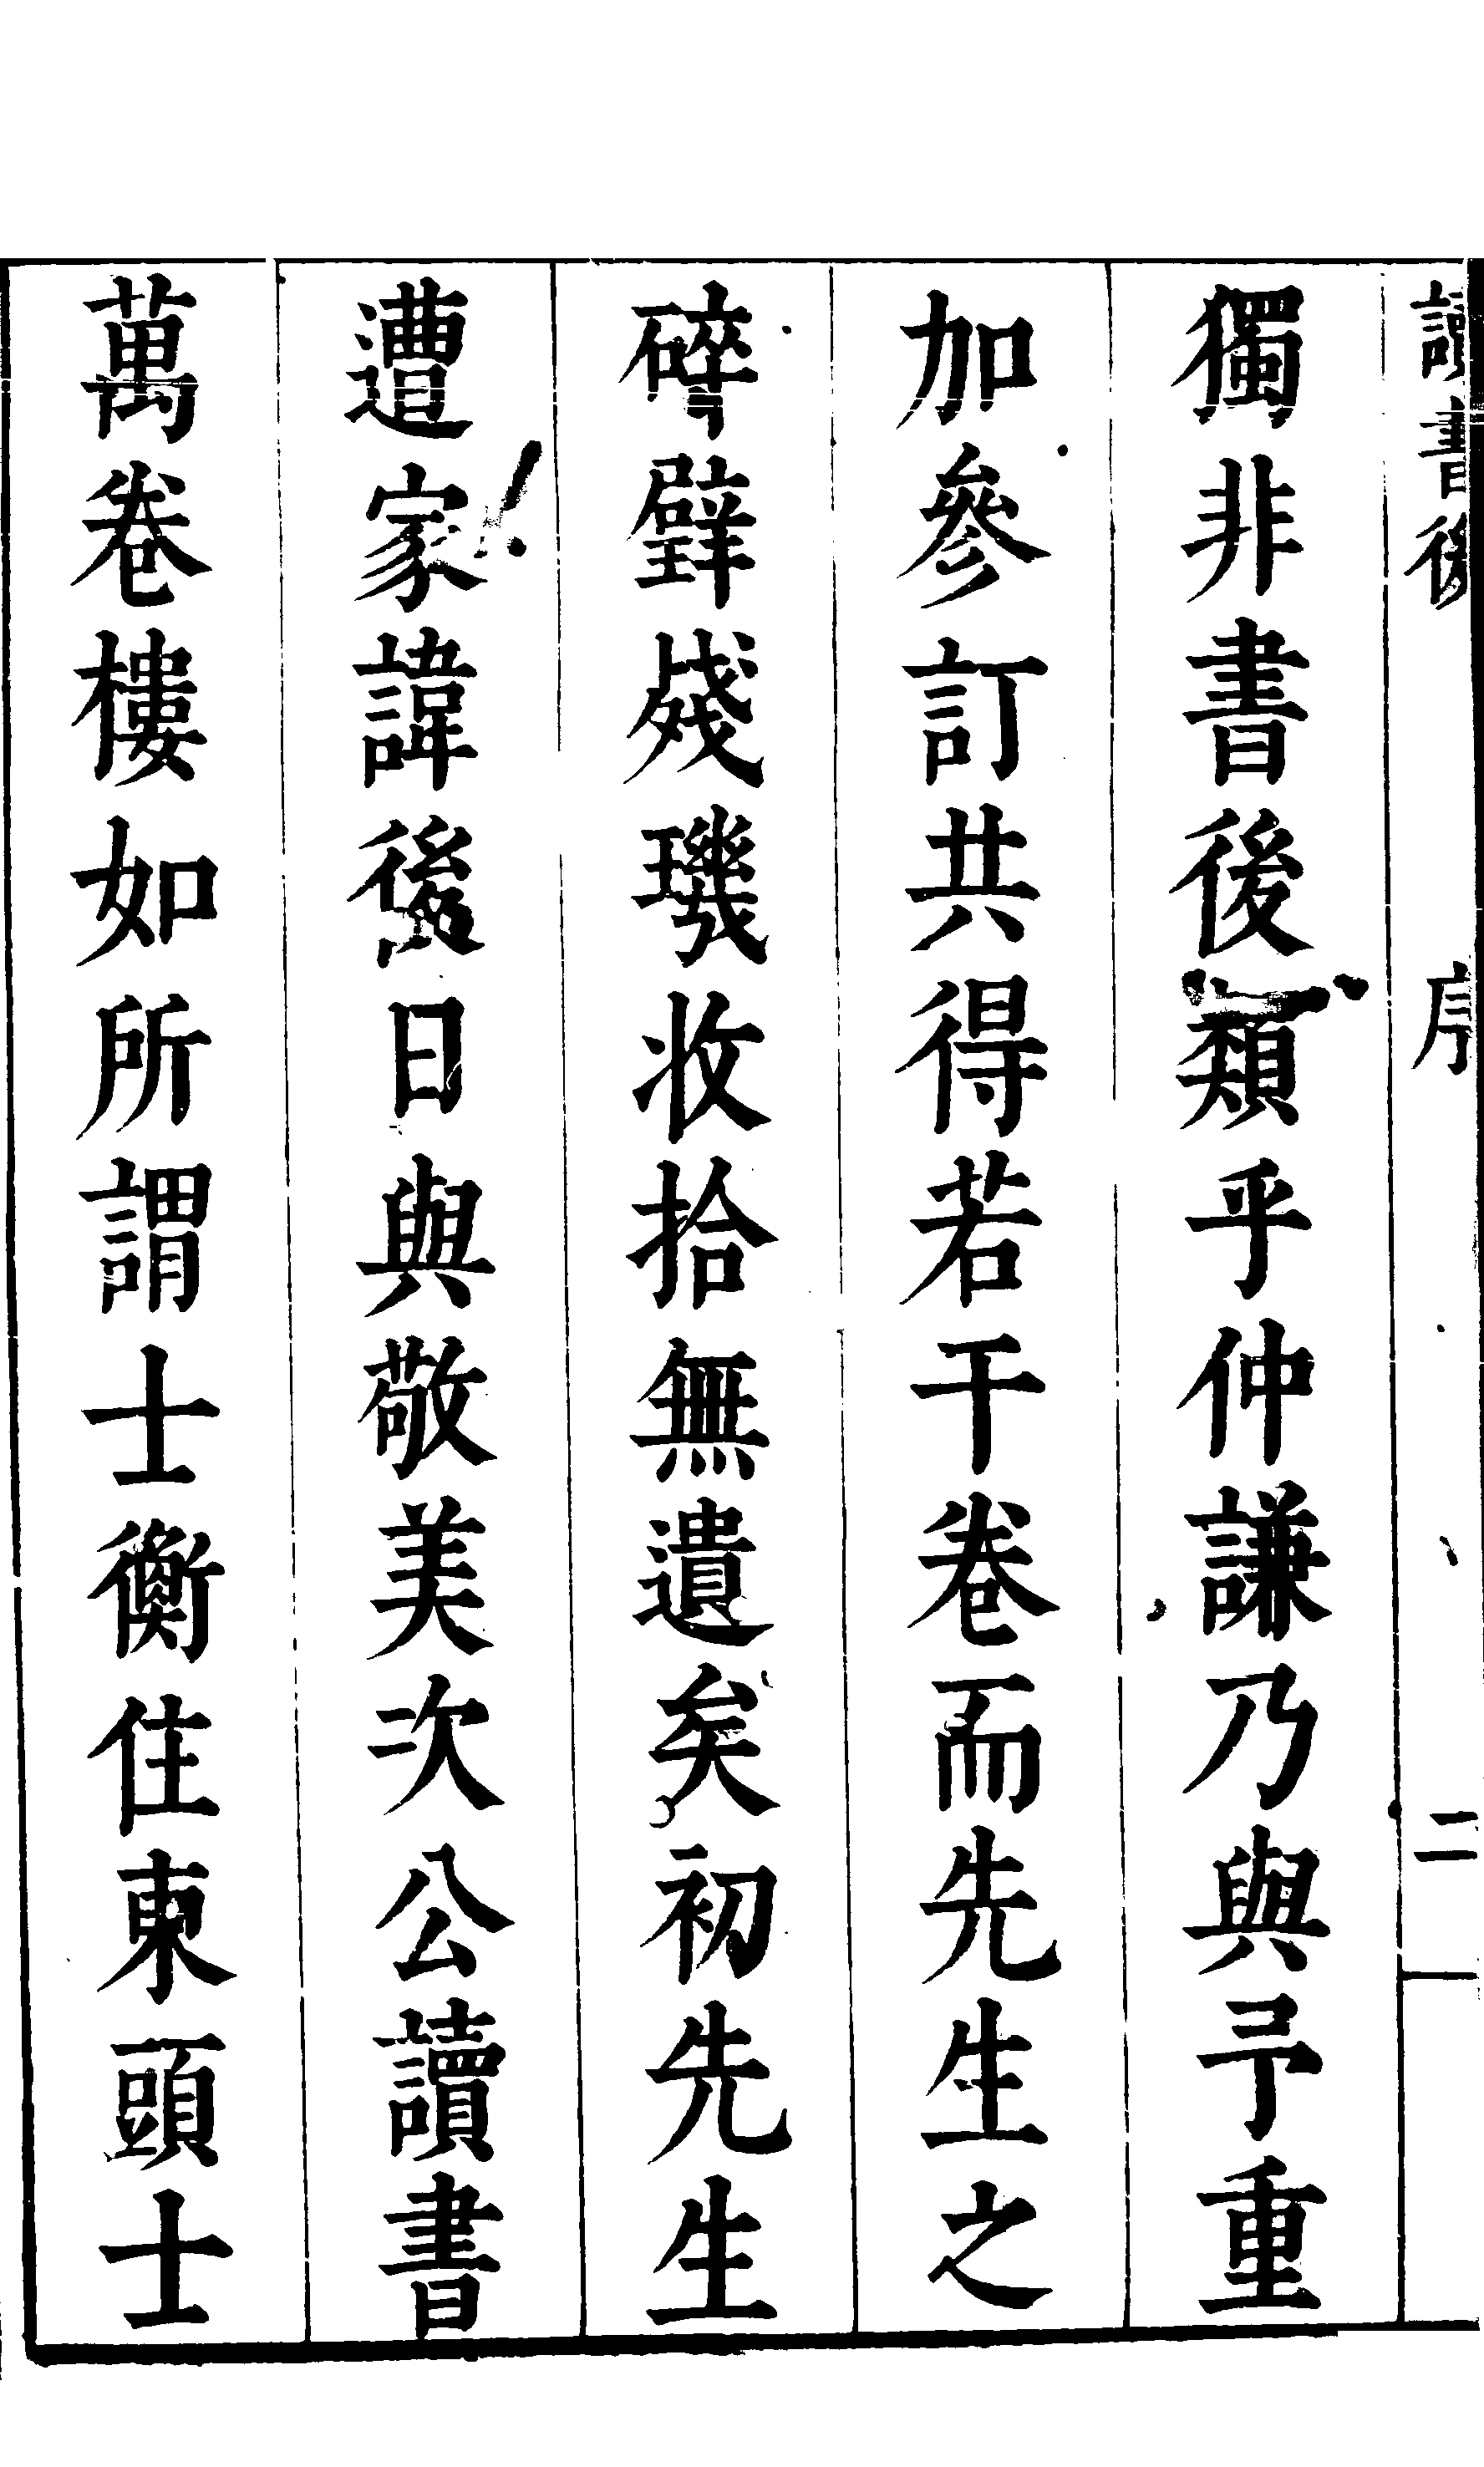 讀書後 序 二
獨非書後類乎仲謙乃與予重
加參訂共得若干卷而先生之
碎璧殘璣收拾無遺矣初先生
遭家諱後日與敬美次公讀書
萬卷樓如所謂士衡住東頭士